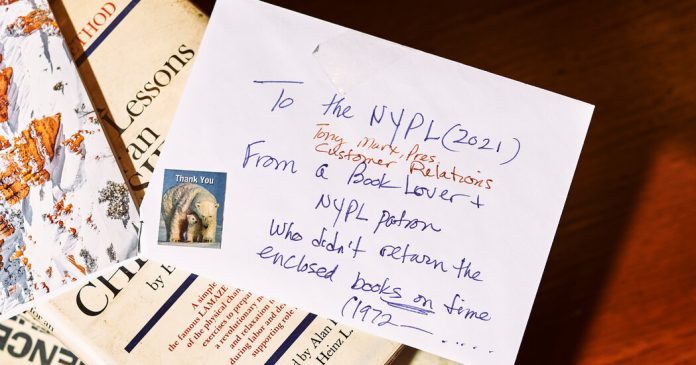 To the NYPL (2021)
Tony Marx, Pres,
Customer Relations
From a Book Lover +
NYPL patron
who didn't return the
enclosed books on time
(1972 – .....
Thank You
THOD
Lessons
an
by E
A simple
of the physical chan
exercises to prepar
a revolutionary m
the famous LAMAZE
and relaxation
during labor and de
supporting role
by Alan
Heinz L